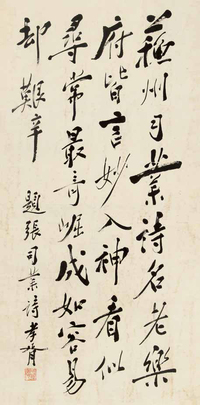 蘇州司業詩名老樂
府皆言妙入神看似
尋常最奇崛成如容易
却艱辛
題張司業詩 孝胥